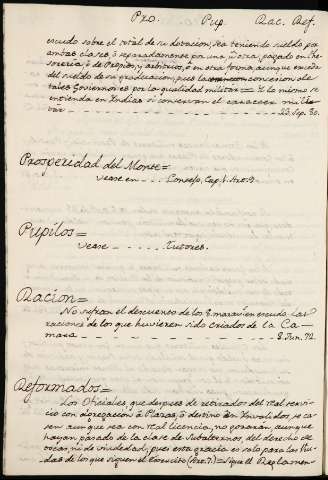 Pro. Pup. Rac. Ref.
escudo sobre el total de su dotacion, sea teniendo sueldo por
ambas clases, ó separadamente por una, ú otra, pagado en The-
sorería, ó de Propios, y arbitrios, ó en otra forma, aunque exceda
del sueldo de su graduacion, pues la concesion de
tales Governores por la qualidad militar = Y lo mismo se
entienda en Indias si conservan el caracter mili-
tar 23. Sep. 80.
Prosperidad del Monte =
vease en Consejo, Cap. 1. Art. 9.
Pupilos =
vease Tutores.
Racion =
No sufran el descuento de los 8 marav. en escudo las
raciones de los que huvieren sido criados de la Ca-
mara 8. Jun. 72.
Reformados =
Los Oficiales, que despues de retirados del real servi-
cio con agregacion á Plazas, ó destino en Invalidos se ca-
sen aunque sea con real licencia, no gozarán, aunque
hayan pasado de la clase de Subalternos, del derecho de
tocas, ni de viudedad, pues esta gracia es solo para las Viu-
das de los que siguen el Exercito (Art. 7.) = Sigue el Reglamen-